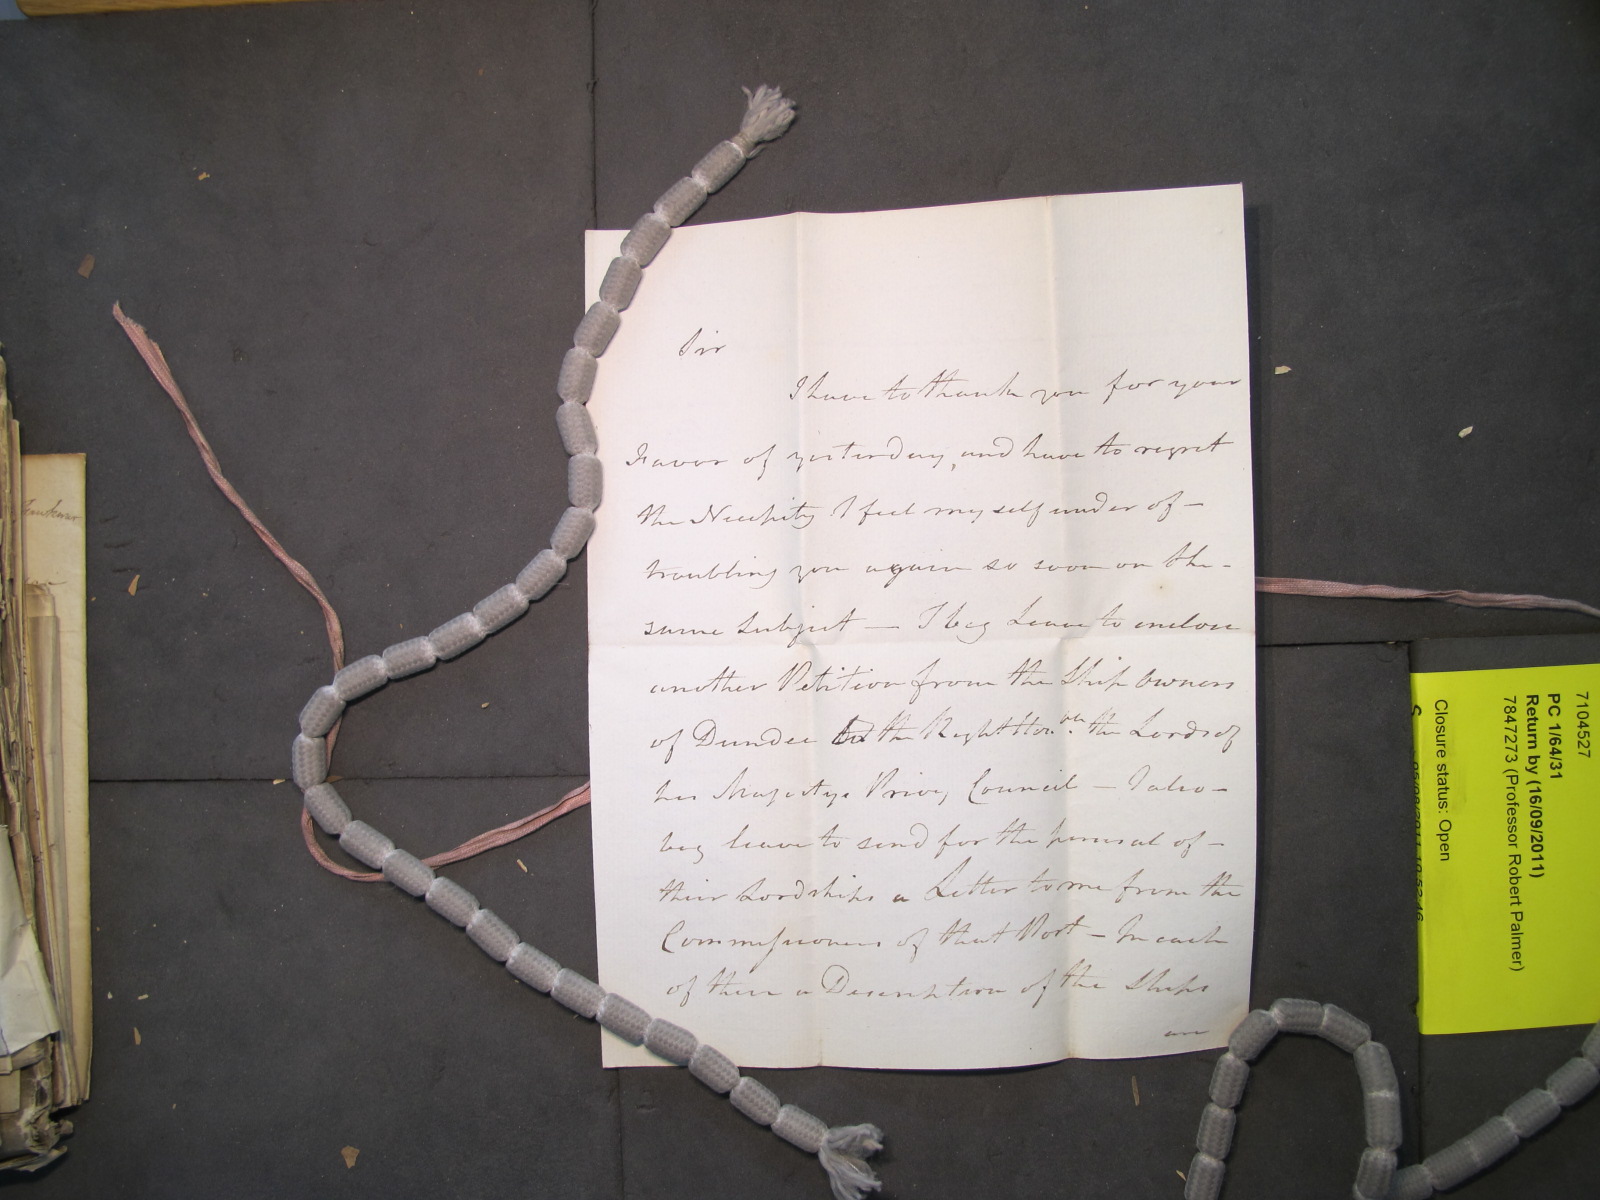 Sir
I have to thank you for your
Favor of yesterday, and have to regret
the Necessity I feel myself under of –
troubling you again so soon on the –
same Subject — I beg Leave to enclose
another Petition from the Ship Owners
of Dundee to the Right Hon.ble the Lords of
his Majestys Privy Council – I also –
beg leave to send for the perusal of –
their Lordships a Letter to me from the
Commissioners of that Port – In each
of them a Description of the Ships
are
7104527
PC 1/64/31
Return by (16/09/2011)
7847273 (Professor Robert Palmer)
Closure status: Open